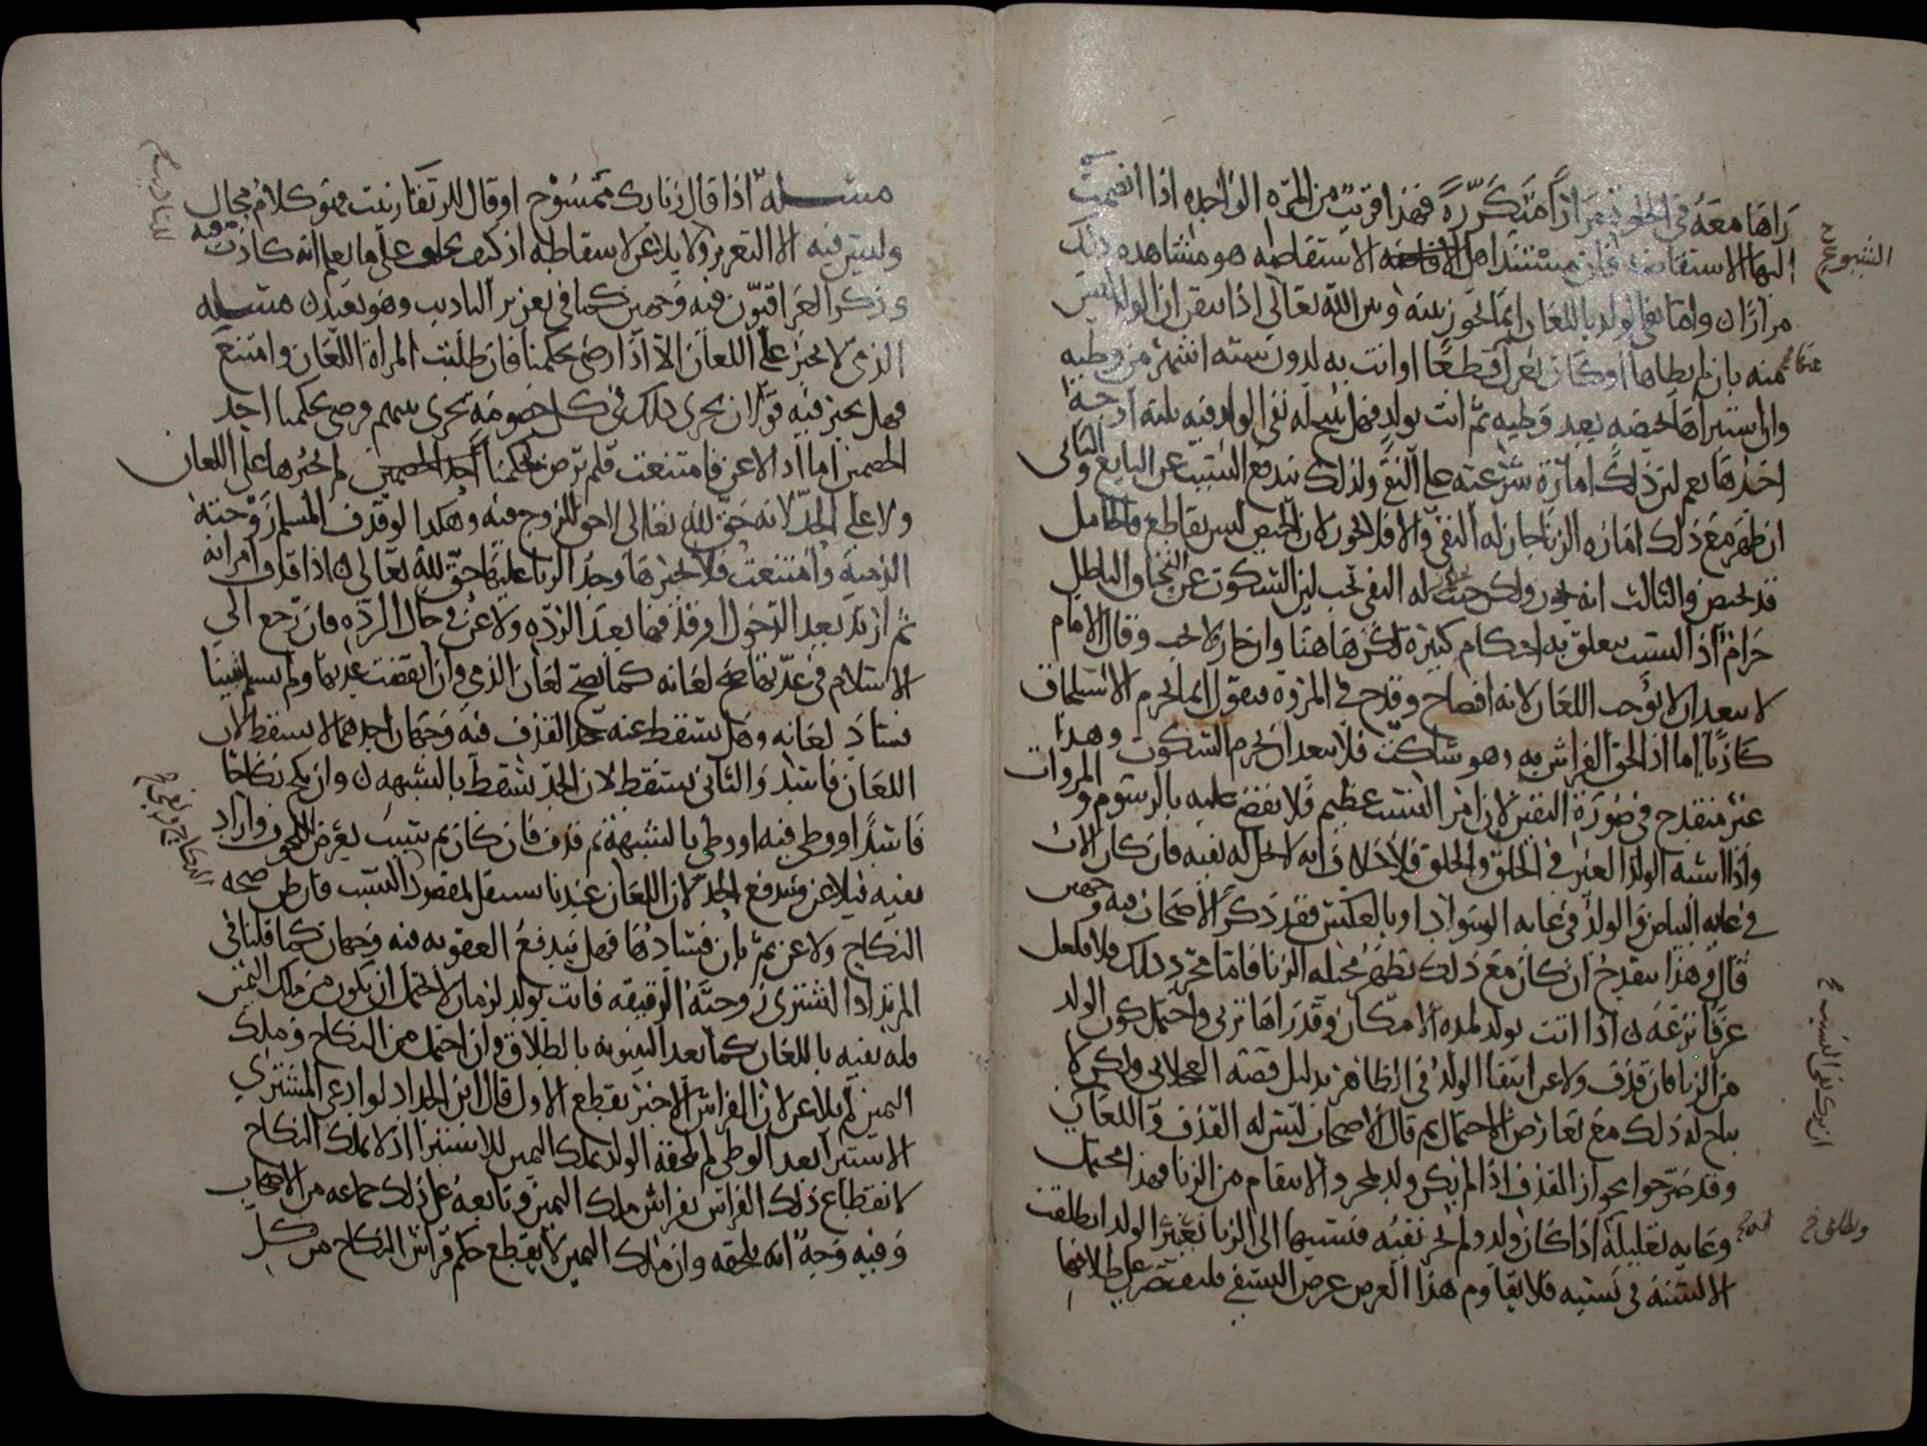 رآها معه في الخلوة مرارا متكررة فهذا قريب من المرة الواحدة اذا انضمت
اليها الاستفاضة فان مستند اهل الاستفاضة هو مشاهده ذلك
مرارا واما نفي الولد باللعان انما يجوز بينه وبين الله تعالى اذا تيقن ان الولد ليس
منه بان لم يطاها او كان يعزل قطعا او اتت به لدون ستة اشهر من وطيه
وان استبراها بحيضه بعد وطيه ثم اتت بولد فهل يباح له نفي الولد فيه ثلثة اوجه
احدها نعم لان ذلك امارة شرعية على النفي ولذلك يندفع النسب عن البايع والثاني
ان ظهر مع ذلك امارة الزنا جاز له النفي والا فلا يجوز لان الحيض ليس بقاطع فالحامل
قد تحيض والثالث انه يجوز ولكن حيث له النفي يجب لان السكوت عن النفي والباطل
حرام اذ النسب يتعلق به احكام كثيرة لكن هاهنا وان جاز لا يجب وقال الامام
لا يبعد ان لا يوجب اللعان لانه افتضاح وقدح في المروة فيقول انما يحرم الاستلحاق
كاذبا اما اذا لحق الفراش به وهو ساكت فلا يبعد ان يحرم السكوت وهذا
غير منقدح في صورة اليقين لان امر النسب عظيم فلا نقضي عليه بالرسوم والمروات
واذا اشبه الولد الغير في الخلق والخلق فلا خلاف انه لا يحل له نفيه فان كان الاب
في غاية البياض والولد في غاية السواد او بالعكس فقد ذكر الاصحاب فيه وجهين
قال وهذا ينقدح ان كان مع ذلك تظهر مخيلة الزنا فاما مجرد ذلك فلا فلعل
عرقا نزعه اذا اتت بولد لمدة الامكان وقد رآها تزني واحتمل كون الولد
من الزنا فان قذف ولاعن انتفا الولد في الظاهر بدليل قصة العجلاني ولكن لا
يباح له ذلك مع تعارض الاحتمال ثم قال الاصحاب ليس له القذف واللعان
وقد صرحوا بجواز القذف اذا لم يكن ولد لمجرد الانتقام من الزنا فهذا محتمل
وغاية تعليله اذا كان ولد ولم يجز نفيه فنسبتها الى الزنا تعيير الولد
الالسنة في نسبه فلا يقاوم هذا الغرض غرض التشفي فليقتصر على طلاقها
مسئلة اذا قال زنا بك ممسوح او قال للرتقا زنيت فهو كلام محال
وليس فيه الا التعزير ولا يلاعن لاسقاطه اذ كيف يحلف على ما يعلم انه كاذب فيه
وذكر العراقيون فيه وجهين كما في تعزير التاديب وهو بعيد مسئلة
الذمي لا يجبر على اللعان الا اذا رضي بحكمنا فان طلبت المراة اللعان وامتنع
فهل يجبر فيه قولان يجري ذلك في كل خصومة تجري بينهم ورضي بحكمنا احد
الخصمين اما اذا لاعن فامتنعت فلم ترض بحكمنا لم نجبرها على اللعان
ولا على الحد لانه حق لله تعالى لا حق للزوج فيه وهكذا لو قذف المسلم زوجته
الذمية وامتنعت فلا نجبرها وحد الزنا عليها حق لله تعالى اذا قذف امراته
ثم ارتد بعد الدخول او قذفها بعد الردة ولاعن في حال الردة فان رجع الى
الاسلام في عدتها صح لعانه كما يصح لعان الذمي وان انقضت عدتها ولم يسلم تبينا
فساد لعانه وهل يسقط عنه حد القذف فيه وجهان احدهما لا يسقط لان
اللعان فاسد والثاني يسقط لان الحد يسقط بالشبهه وان نكح نكاحا
فاسدا ووطي فيه او وطي بالشبهة ثم قذف فان كان ثم نسب يعرض للحوق واراد
نفيه فيلاعن ويندفع الحد لان اللعان عندنا يستقل لمقصود النسب فان ظن صحة
النكاح ولاعن ثم بان فسادها فهل يندفع العقوبه فيه وجهان كما قلنا في
المرتد اذا اشترى زوجته الرقيقه فاتت بولد لزمان لا يحتمل ان يكون من ملك اليمين
فله نفيه باللعان كما بعد البينونه بالطلاق وان احتمل من النكاح وملك
اليمين لم يلاعن لان الفراش الاخير يقطع الاول قال ابن الحداد لو ادعى المشتري
الاستبرا بعد الوطي لم يلحقه الولد بملك اليمين للاستبرا اذ لا يملك النكاح
لانقطاع ذلك الفراش بفراش ملك اليمين وتابعه على ذلك جماعه من الاصحاب
وفيه وجه انه يلحقه وان ملك اليمين لا يقطع حكم فراش النكاح من كل